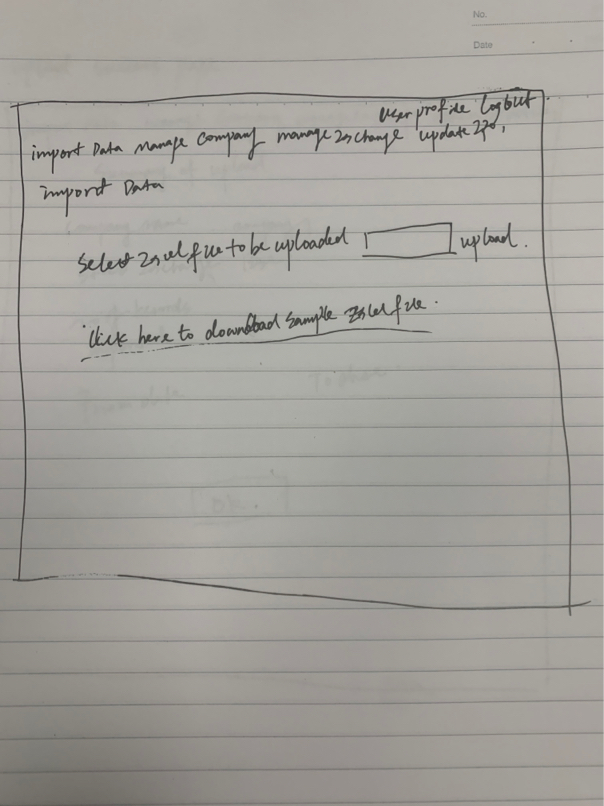 No.
Date
User profile Logout
import Data Manage Company manage Exchange update
import Data
Select Excel file to be uploaded upload.
Click here to download sample Excel file.